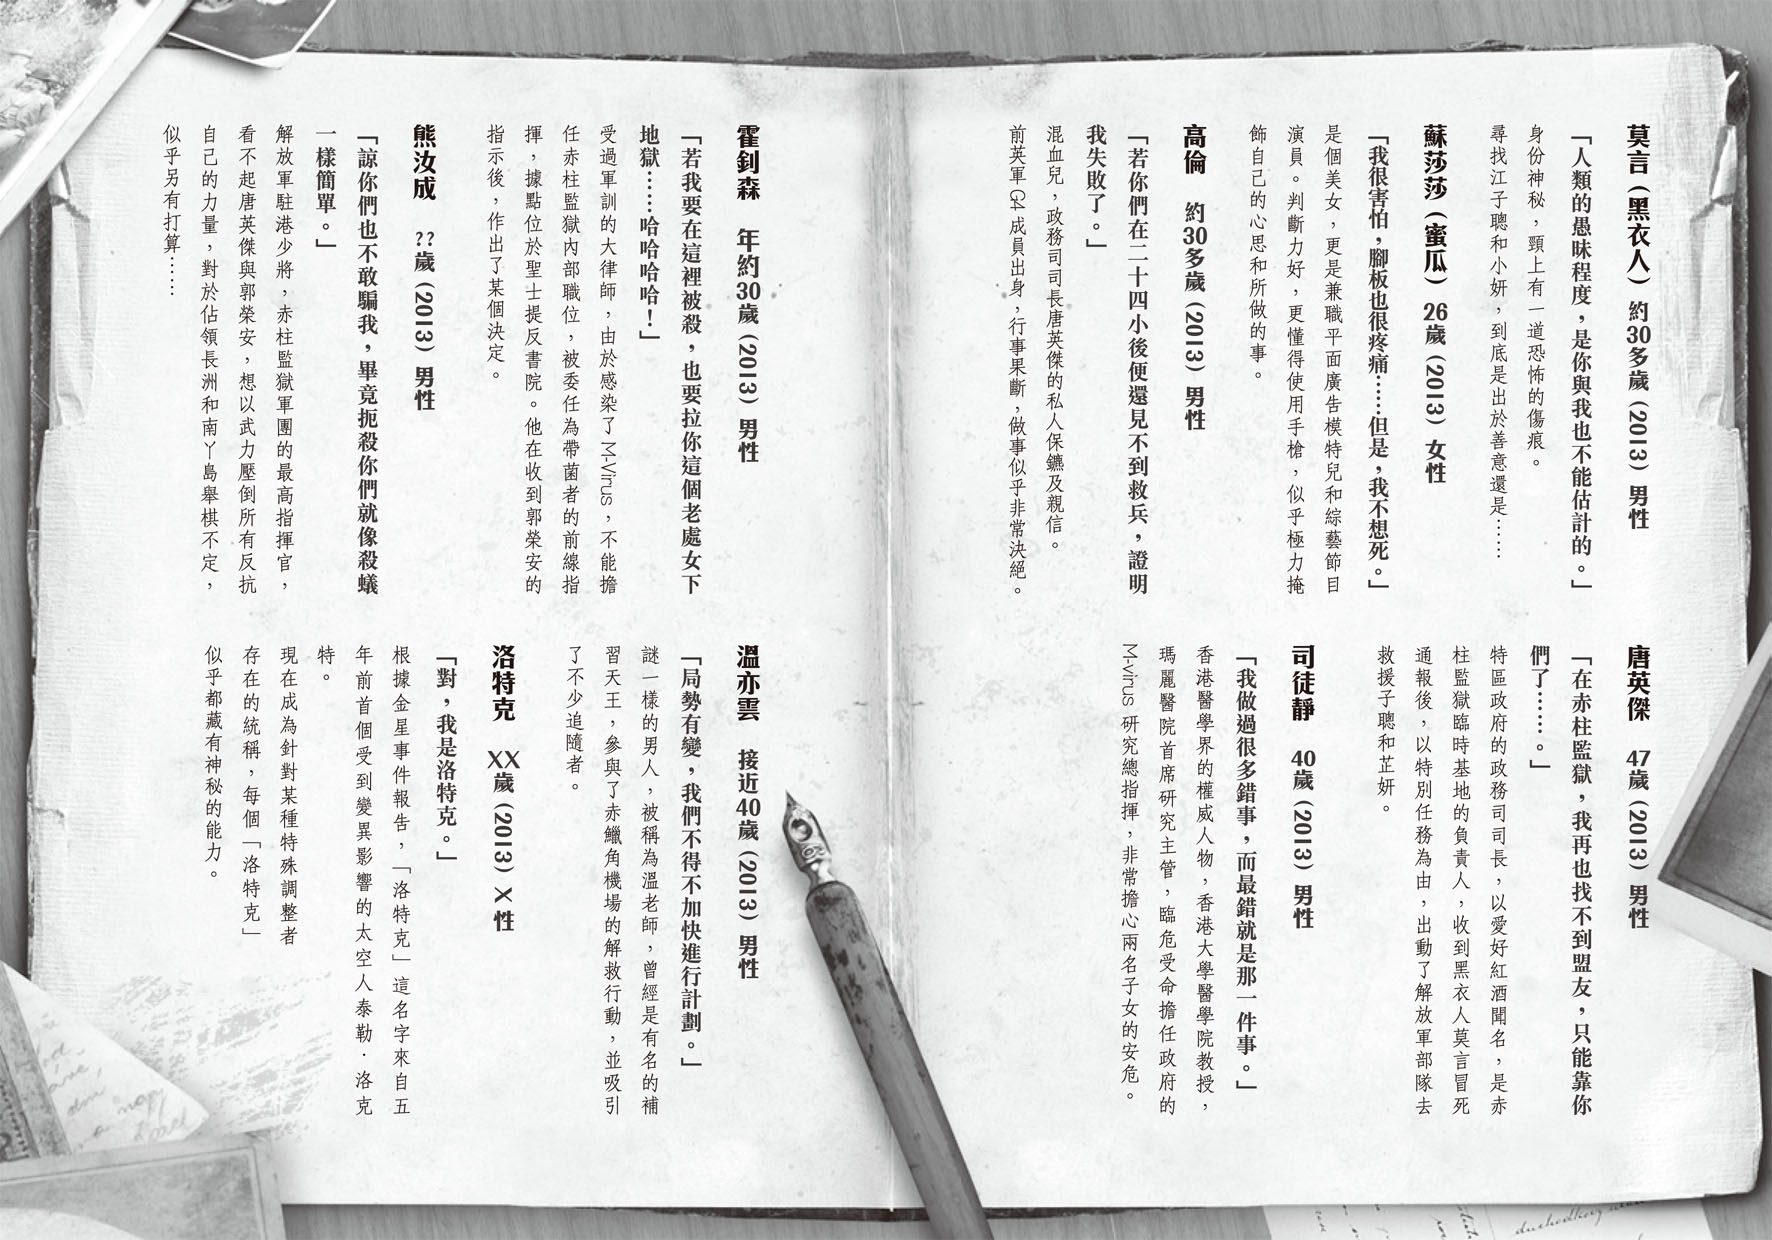 莫言（黑衣人） 約30多歲（2013） 男性
「人類的愚昧程度，是你與我也不能估計的。」
身份神秘，頸上有一道恐怖的傷痕。
尋找江子聰和小妍，到底是出於善意還是……
蘇莎莎（蜜瓜） 26歲（2013） 女性
「我很害怕，腳板也很疼痛……但是，我不想死。」
是個美女，更是兼職平面廣告模特兒和綜藝節目
演員。判斷力好，更懂得使用手槍，似乎極力掩
飾自己的心思和所做的事。
高倫 約30多歲（2013） 男性
「若你們在二十四小後便還見不到救兵，證明
我失敗了。」
混血兒，政務司司長唐英傑的私人保鑣及親信。
前英軍G4成員出身，行事果斷，做事似乎非常決絕。
唐英傑 47歲（2013） 男性
「在赤柱監獄，我再也找不到盟友，只能靠你
們了……。」
特區政府的政務司司長，以愛好紅酒聞名，是赤
柱監獄臨時基地的負責人，收到黑衣人莫言冒死
通報後，以特別任務為由，出動了解放軍部隊去
救援子聰和芷妍。
司徒靜 40歲（2013） 男性
「我做過很多錯事，而最錯就是那一件事。」
香港醫學界的權威人物，香港大學醫學院教授，
瑪麗醫院首席研究主管，臨危受命擔任政府的
M-virus 研究總指揮，非常擔心兩名子女的安危。
霍釗森 年約30歲（2013） 男性
「若我要在這裡被殺，也要拉你這個老處女下
地獄……哈哈哈哈！」
受過軍訓的大律師，由於感染了M-Virus，不能擔
任赤柱監獄內部職位，被委任為帶菌者的前線指
揮，據點位於聖士提反書院。他在收到郭榮安的
指示後，作出了某個決定。
熊汝成 ??歲（2013） 男性
「諒你們也不敢騙我，畢竟扼殺你們就像殺蟻
一樣簡單。」
解放軍駐港少將，赤柱監獄軍團的最高指揮官，
看不起唐英傑與郭榮安，想以武力壓倒所有反抗
自己的力量，對於佔領長洲和南丫島舉棋不定，
似乎另有打算……
溫亦雲 接近40歲（2013） 男性
「局勢有變，我們不得不加快進行計劃。」
謎一樣的男人，被稱為溫老師，曾經是有名的補
習天王，參與了赤鱲角機場的解救行動，並吸引
了不少追隨者。
洛特克 XX歲（2013） X性
「對，我是洛特克。」
根據金星事件報告，「洛特克」這名字來自五
年前首個受到變異影響的太空人泰勒．洛克
特。
現在成為針對某種特殊調整者
存在的統稱，每個「洛特克」
似乎都藏有神秘的能力。